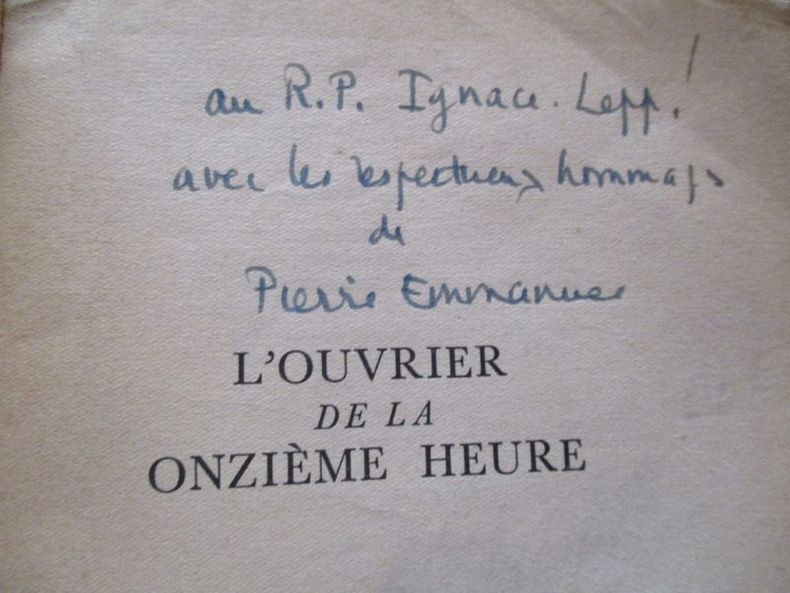 au R.P. Ignace. Lepp!
avec les respectueux hommages
de
Pierre Emmanuel
L'OUVRIER
DE LA
ONZIÈME HEURE